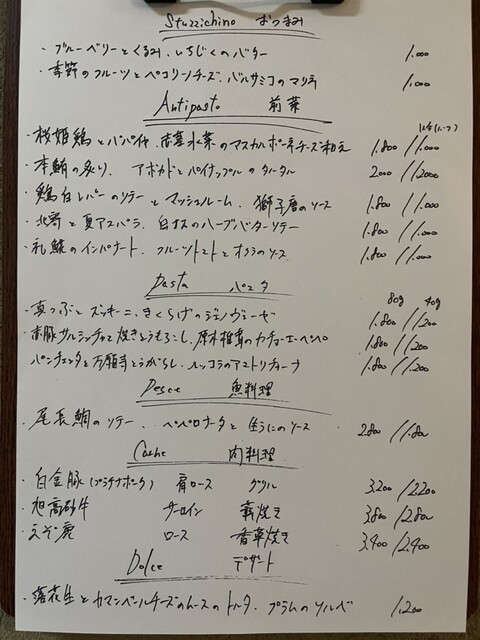 Stuzzichino おつまみ
・ブルーベリーとくるみ、いちじくのバター 1.000
・季節のフルーツとペコリーノチーズ、バルサミコのマリネ 1.000
Antipasto 前菜
・桜姫鶏とパパイヤ、赤茎水菜のマスカルポーネチーズ和え 1.800/1.000
・本鮪の炙り、アボカドとパイナップルのタルタル 2000/1.2000
・鶏白レバーのソテーとマッシュルーム、獅子唐のソース 1.800/1.000
・北寄と夏アスパラ、白ナスのハーブバターソテー 1.800/1.000
・礼鱗のインパナート、フルーツトマトとオクラのソース 1.800/1.000
Pasta パスタ 80g 40g
・真つぶとズッキーニ、きくらげのジェノヴェーゼ 1.800/1.200
・赤豚サルシッチャと焼きとうもろこし、原木椎茸のカチョーエペペ 1.800/1.200
パンチェッタと万願寺とうがらし、ルッコラのアマトリチャーナ 1.800/1.200
Pesce 魚料理
・尾長鯛のソテー、ペペロナータと生うにのソース 2.800/1.800
Carne 肉料理
・白金豚(プラチナポーク) 肩ロース グリル 3.200/2.200
・旭高砂牛 サーロイン 藁焼き 3.800/2.800
・えぞ鹿 ロース 香草焼き 3.400/2.400
Dolce デザート
・落花生とカマンベールチーズのムースのトルタ、プラムのソルベ 1.200